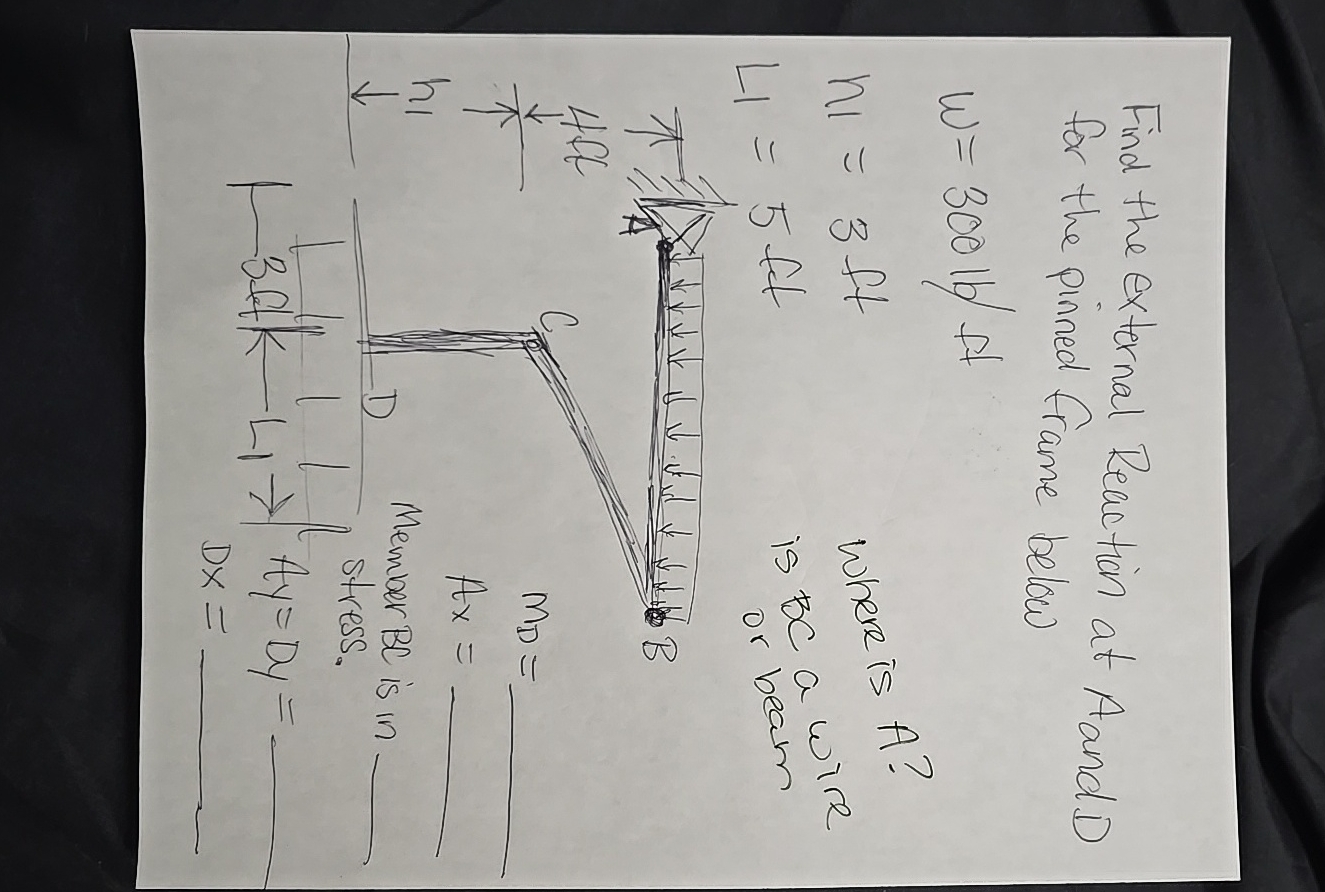 Find the external Reaction at A and D
for the pinned frame below
W = 300 lb/ft
h1 = 3 ft
L1 = 5 ft
where is A?
is BC a wire
or beam
A
B
4ft
C
h1
D
3ft
L1
MD = ____
Ax = ____
Member BC is in ____
stress.
Ay = Dy = ____
Dx = ____